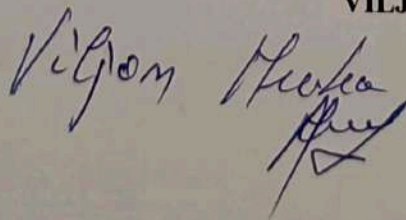 VILJ
Viljon Muka